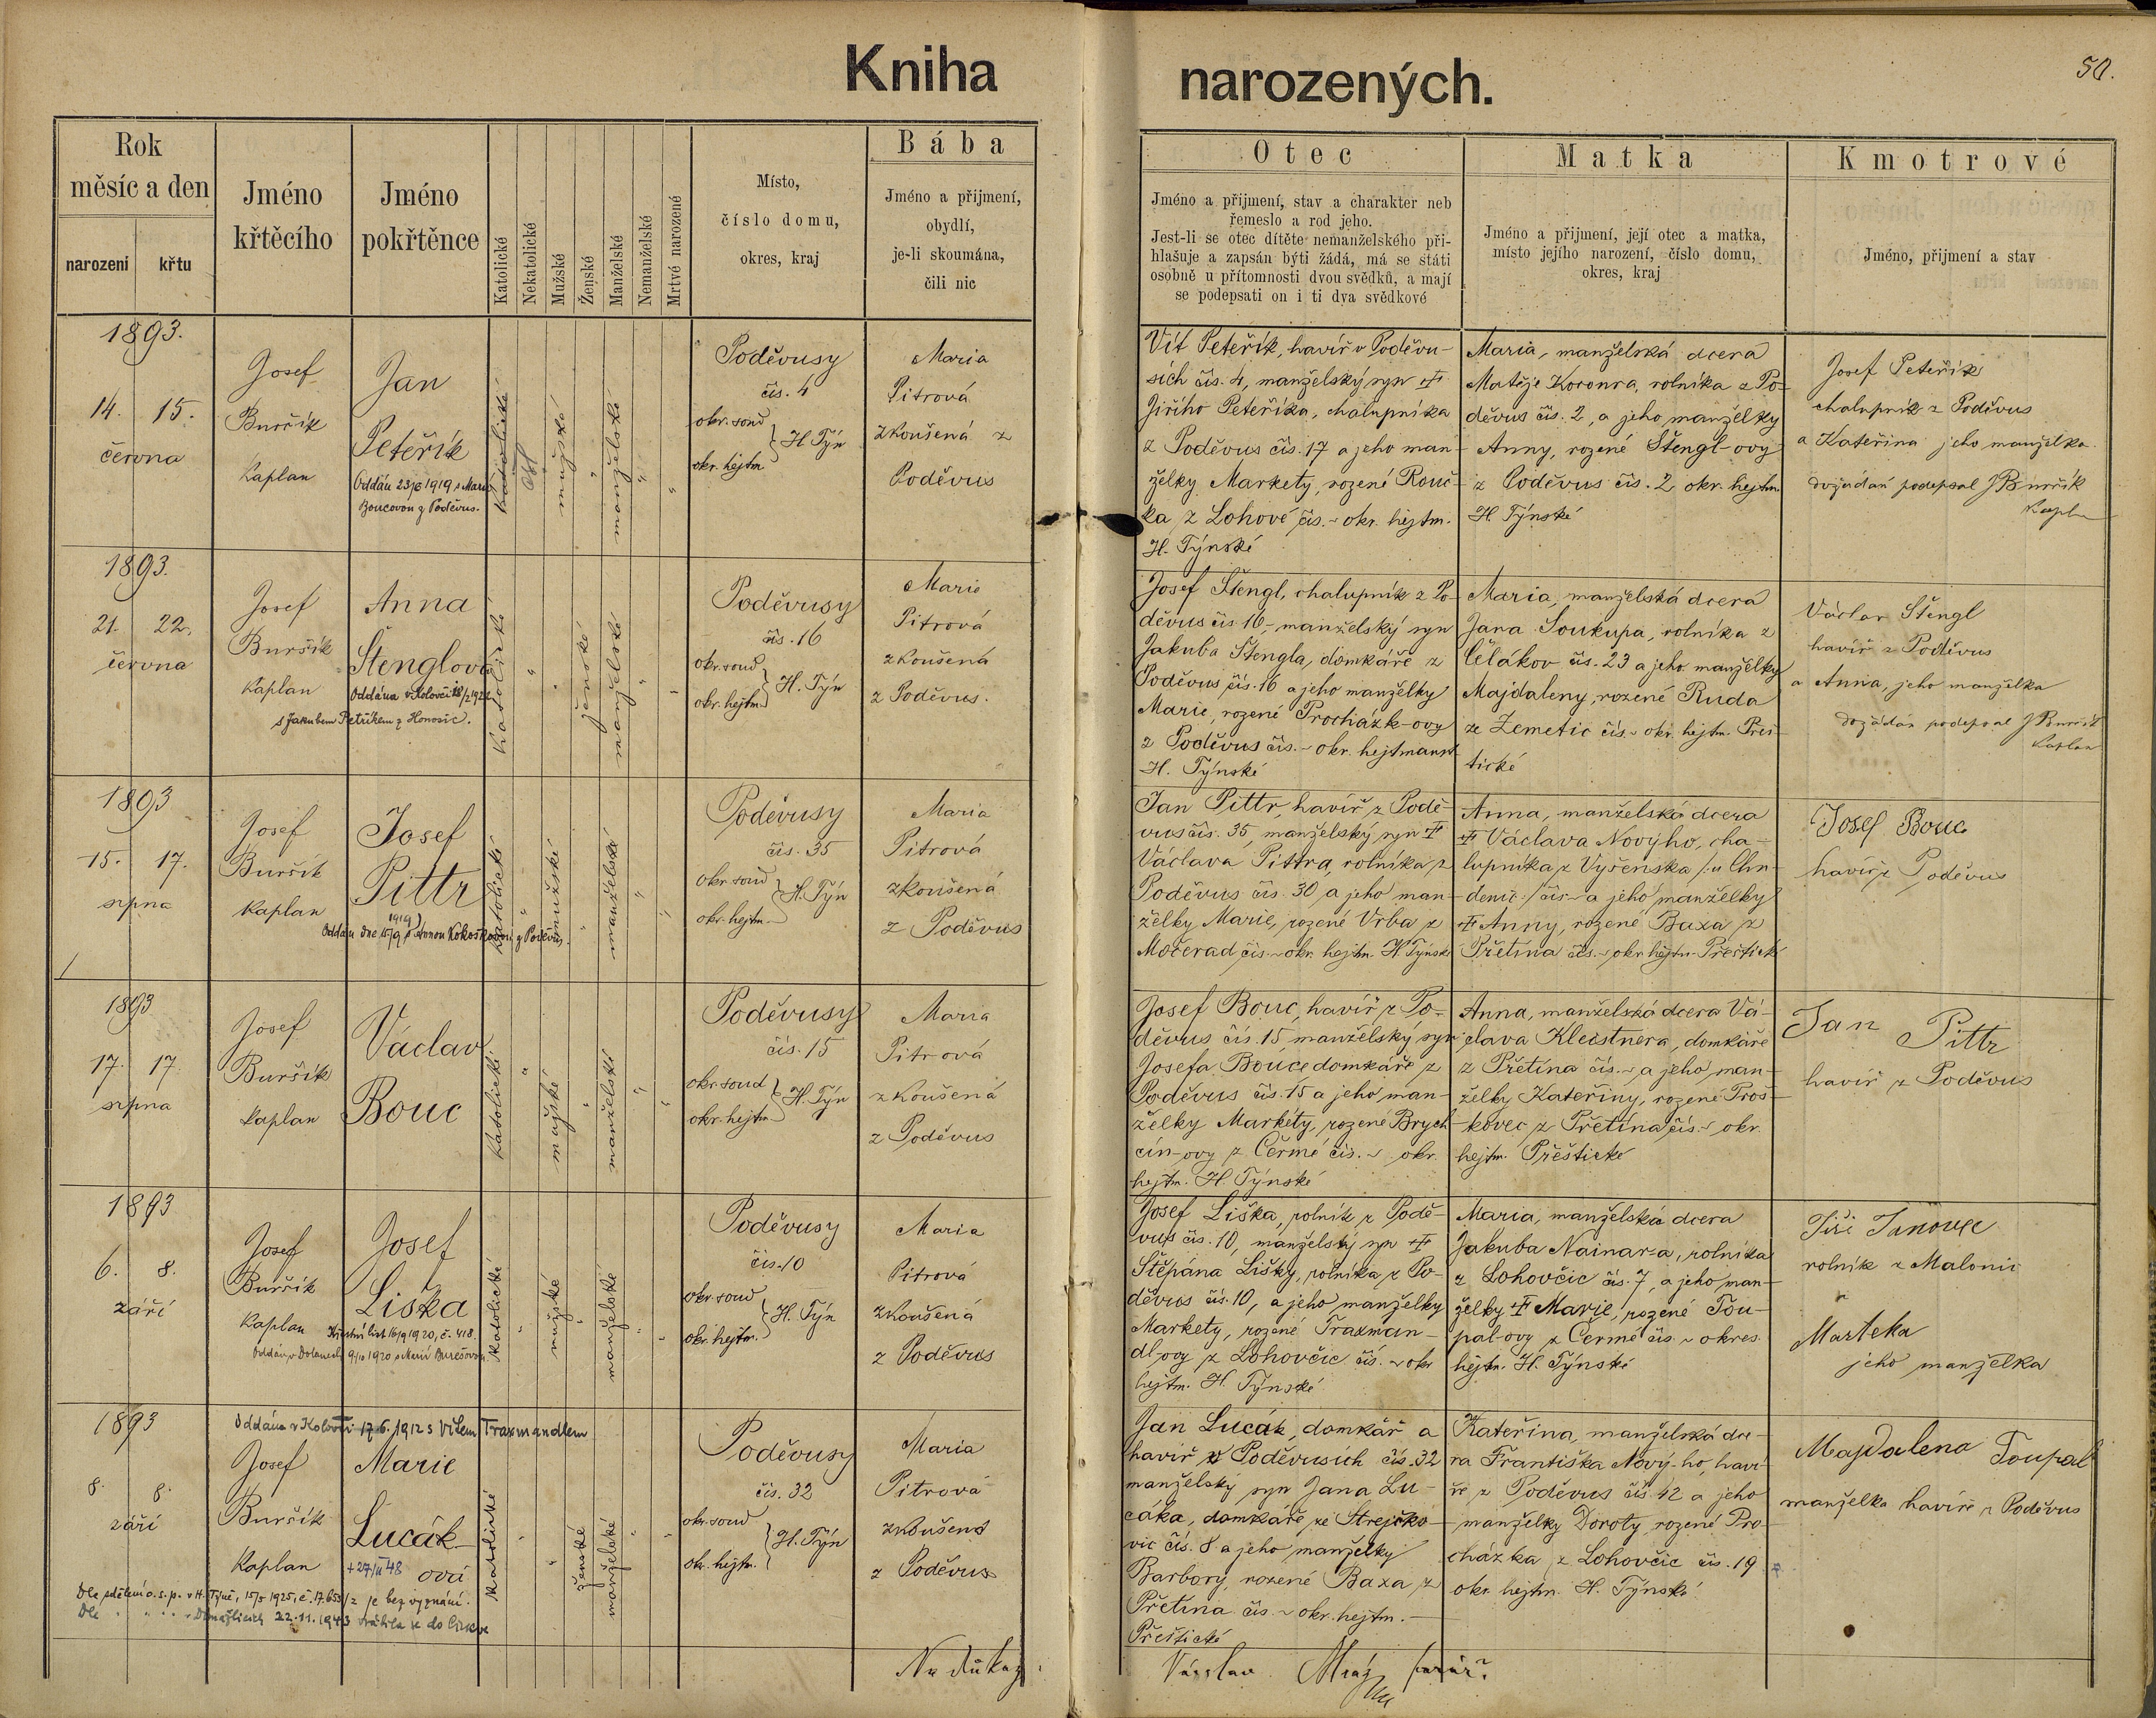 Kniha
narozených.
50.
Rok
měsíc a den
narození
křtu
Jméno
křtěcího
Jméno
pokřtěnce
Katolické
Nekatolické
Mužské
Ženské
Manželské
Nemanželské
Mrtvé narozené
Místo,
číslo domu,
okres, kraj
Bába
Jméno a přijmení,
obydlí,
je-li skoumána,
čili nic
Otec
Jméno a přijmení, stav a charakter neb
řemeslo a rod jeho.
Jest-li se otec dítěte nemanželského při-
hlašuje a zapsán býti žádá, má se státi
osobně u přítomnosti dvou svědků, a mají
se podepsati on i ti dva svědkové
Matka
Jméno a přijmení, její otec a matka,
místo jejího narození, číslo domu,
okres, kraj
Kmotrové
Jméno, přijmení a stav
1893.
14. 15.
června
Josef
Burčík
Kaplan
Jan
Peteřík
Oddán 23/6 1919 s Marií
Boucovou z Poděvus.
katolické
mužské
manželské
Poděvusy
čís. 4
okr. soud
okr. hejtm.
H. Týn
Maria
Pitrová
zkoušená z
Poděvus
Vít Peteřík, havíř v Poděvu-
sích čís. 4, manželský syn
Jiřího Peteříka, chalupníka
z Poděvus čís. 17 a jeho man-
želky Markety, rozené Rouč-
ka z Lohové čís. ~ okr. hejtm.
H. Týnské
Maria, manželská dcera
Matěje , rolníka z Po-
děvus čís. 2, a jeho manželky
Anny, rozené Štengl-ovy
z Poděvus čís. 2 okr. hejtm.
H. Týnské
Josef Peteřík
chalupník z Poděvus
a Kateřina jeho manželka
dožádán podepsal J Burčík
Kaplan
1893.
21. 22.
června
Josef
Burčík
Kaplan
Anna
Štenglová
Oddána v Kolovči
s Jakubem Petříkem z Honosic.
katolické
ženské
manželské
Poděvusy
čís. 16
okr. soud
okr. hejtm.
H. Týn
Marie
Pitrová
zkoušená
z Poděvus.
Josef Štengl, chalupník z Po-
děvus čís. 16, manželský syn
Jakuba Štengla, domkáře z
Poděvus čís. 16 a jeho manželky
Marie, rozené Procházk-ovy
z Poděvus čís. ~ okr. hejtmanst.
H. Týnské
Maria, manželská dcera
Jana Soukupa, rolníka z
Čélákov čís. 23 a jeho manželky
Majdaleny, rozené Ruda
ze Zemetic čís. ~ okr. hejtm. Přeš-
tické
Václav Štengl
havíř z Poděvus
a Anna, jeho manželka
dožádán podepsal J Burčík
Kaplan
1893
15. 17.
srpna
Josef
Burčík
Kaplan
Josef
Pittr
1919
Oddán dne 15/9 s Annou Kokoškovou z Poděvus.
katolické
mužské
manželské
Poděvusy
čís. 35
okr. soud
okr. hejtm.
H. Týn
Maria
Pitrová
zkoušená
z Poděvus
Jan Pittr, havíř z Podě-
vus čís. 35, manželský syn
Václava Pittra, rolníka z
Poděvus čís. 30 a jeho man-
želky Marie, rozené Vrba z
Močerad čís. ~ okr. hejtm. H. Týnsk.
Anna, manželská dcera
Václava Novýho, cha-
lupníka z Vyšenska /: u Chu-
denic :/ čís. ~ a jeho manželky
Anny, rozené Baxa z
Přetína čís. ~ okr. hejtm. Přeštické
Josef Bouc
havíř z Poděvus
1893
17. 17.
srpna
Josef
Burčík
kaplan
Václav
Bouc
katolické
mužské
manželské
Poděvusy
čís. 15
okr. soud
okr. hejtm.
H. Týn
Maria
Pitrová
zkoušená
z Poděvus
Josef Bouc, havíř z Po-
děvus čís. 15, manželský syn
Josefa Bouce domkáře z
Poděvus čís. 15 a jeho man-
želky Markéty, rozené Brych-
cín-ovy z Čermé čís. ~ okr.
hejtm. H. Týnské
Anna, manželská dcera Vá-
clava Kleistnera, domkáře
z Přetína čís. ~ a jeho man-
želky Kateřiny, rozené Proš-
kovec z Přetína čís. ~ okr.
hejtm. Přeštické
Jan Pittr
havíř z Poděvus
1893
6. 8.
září
Josef
Burčík
Kaplan
Josef
Liška
Křestní list 16/9 1920, č. 418.
Oddán v Dolanech 9/10 1920 s Marií Burešovou
katolické
mužské
manželské
Poděvusy
čís. 10
okr. soud
okr. hejtm.
H. Týn
Maria
Pitrová
zkoušená
z Poděvus
Josef Liška, rolník z Podě-
vus čís. 10, manželský syn
Štěpána Lišky, rolníka z Po-
děvus čís. 10, a jeho manželky
Markety, rozené Traxman-
dl-ovy z Lohovčic čís. ~ okr.
hejtm. H. Týnské
Maria, manželská dcera
Jakuba Nainar-a, rolníka
z Lohovčic čís. 7, a jeho man-
želky Marie, rozené Tou-
pal-ovy z Čermé čís. ~ okres.
hejtm. H. Týnské
Jiří Janovec
rolník z Malonic
Marketa
jeho manželka
1893
8. 8.
září
Oddána v Kolovči 17.6. 1912 s Vítem Traxmandlem
Josef
Burčík
Kaplan
Marie
Lucák-
ová
Dle sdělení o. s. p. v H. Týně, 15/5 1925, č. 17.653/2 je bez vyznání.
Dle " " " v Domažlicích 22.11.1943 vrátila se do Církve
katolické
ženské
manželské
Poděvusy
čís. 32
okr. soud
okr. hejtm.
H. Týn
Maria
Pitrová
zkoušená
z Poděvus
Jan Lucák, domkář a
havíř v Poděvusích čís. 32
manželský syn Jana Lu-
cáka, domkáře ze Strejčko-
vic čís. 8 a jeho manželky
Barbory, rozené Baxa z
Přetína čís. ~ okr. hejtm.
Přeštické
Kateřina, manželská dce-
ra Františka Nový-ho, haví-
ře z Poděvus čís. 42 a jeho
manželky Doroty, rozené Pro-
cházka z Lohovčic čís. 19
okr. hejtm. H. Týnské
Majdalena Toupal
manželka havíře z Poděvus
Na důkaz
Václav Mráz farář